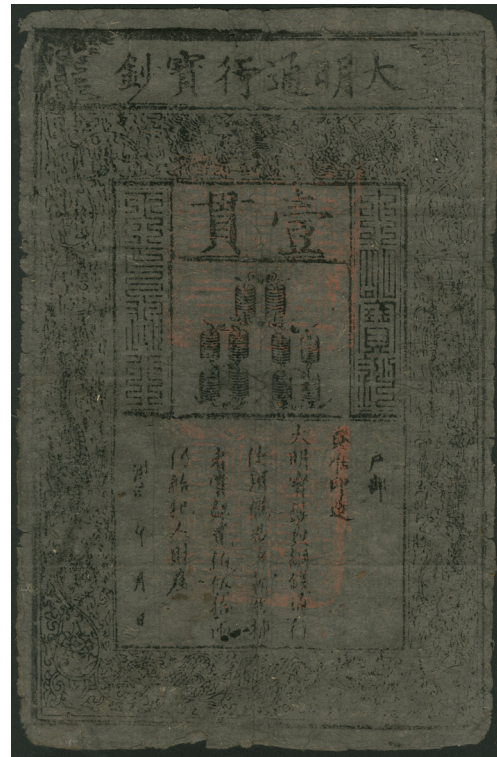 大明通行寶鈔
大明寶鈔
壹貫
天下通行
戶部
奏准印造
大明寶鈔與銅錢通行
使用偽造者斬告捕
者賞銀貳伯伍拾兩
仍給犯人財產
洪武 年 月 日